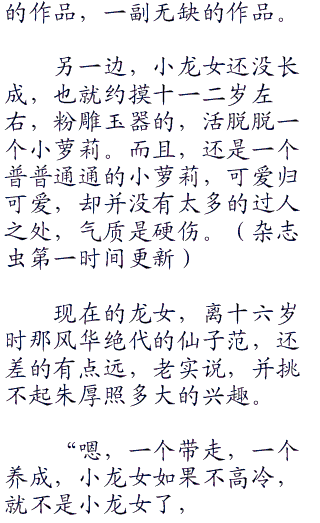 的作品，一副无缺的作品。
另一边，小龙女还没长
成，也就约摸十一二岁左
右，粉雕玉器的，活脱脱一
个小萝莉。而且，还是一个
普普通通的小萝莉，可爱归
可爱，却并没有太多的过人
之处，气质是硬伤。（杂志
虫第一时间更新）
现在的龙女，离十六岁
时那风华绝代的仙子范，还
差的有点远，老实说，并挑
不起朱厚照多大的兴趣。
“嗯，一个带走，一个
养成，小龙女如果不高冷，
就不是小龙女了，